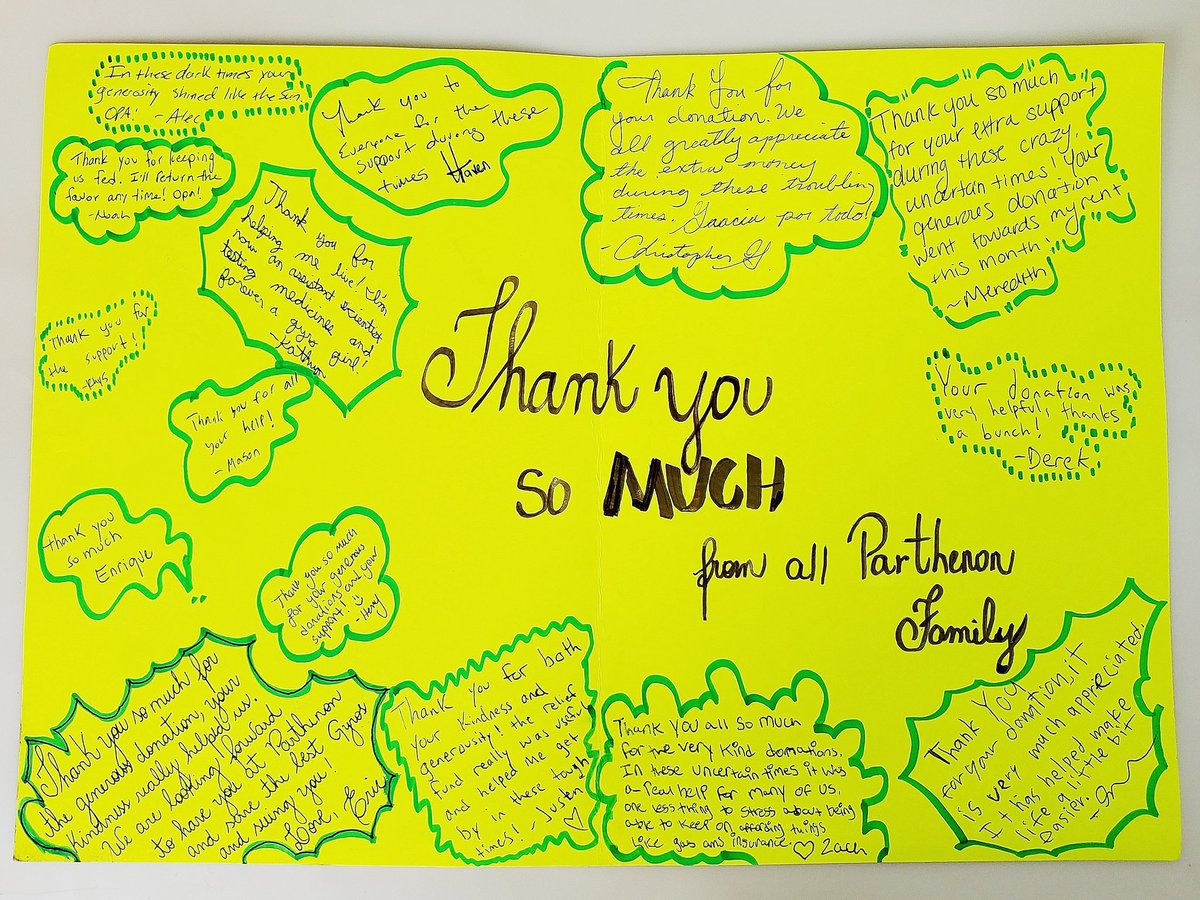 In these dark times your
generosity shined like the Sun.
OPA! - Alec
Thank you to
Everyone for the
support during these
times Haven
Thank You for
your donation. We
all greatly appreciate
the extra money
during these troubling
times. Gaacia por todo!
- Christopher G.
Thank you so much
for your extra support
during these crazy,
uncertain times! Your
generous donation
went towards my rent
this month!
~ Meredith
Thank you for keeping
us fed. I'll return the
favor any time! Opa!
- Noah
Thank you for
helping me live! I'm
now an assistant scientist
testing medicines and
forever a gyro girl!
- Kathryn
Thank you for
the support!!
- Rhys
Thank you for all
your help!
- Mason
Thank you
so MUCH
from all Parthenon
Family
Your donation was
very helpful, thanks
a bunch!
- Derek
Thank you
so much
Enrique
Thank you so much
for your generous
donations and your
support! :)
- Henry
Thank you so much for
the generous donation, your
kindness really helped us.
We are looking forward
to have you at Parthenon
and serve the best Gyros
and seeing you!
Love, Eric
Thank you for both
your kindness and
generosity! The relief
fund really was useful
and helped me get
by in these tough
times! - Justen ♡
Thank you all so much
for the very kind donations.
In these uncertain times it was
a real help for many of us.
one less thing to stress about being
able to keep on affording things
like gas and insurance. ♡ Zach
Thank You
for your donation, it
is very much appreciated.
It has helped make
life a little bit
easier.